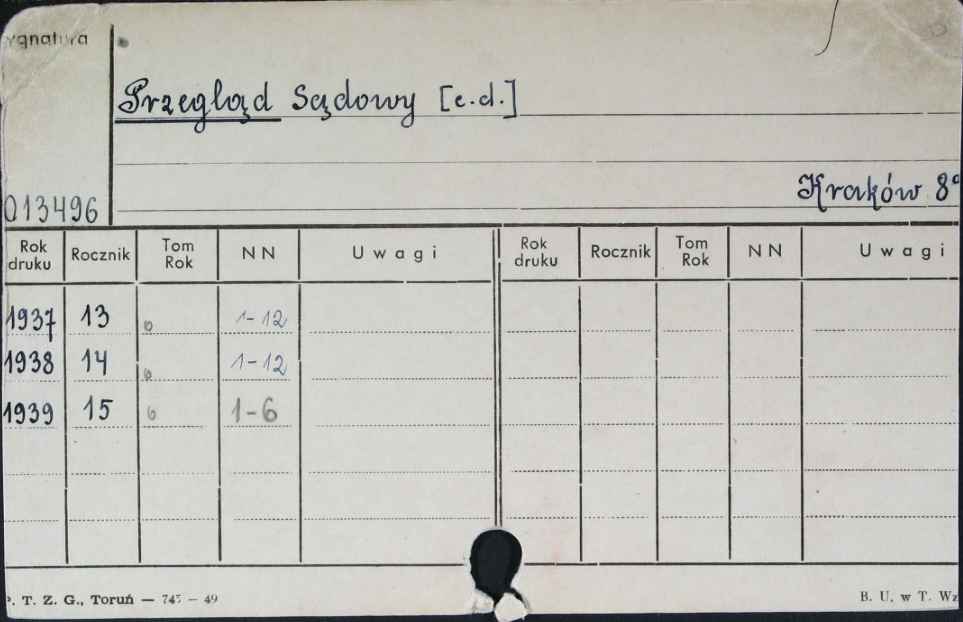 ygnatura
Przegląd Sądowy [c.d.]
Kraków 8°
013496
Rok druku Rocznik Tom Rok NN Uwagi Rok druku Rocznik Tom Rok NN Uwagi
1937 13 6 1-12
1938 14 6 1-12
1939 15 6 1-6
P. T. Z. G., Toruń — 745 — 49 B. U. w T. Wz